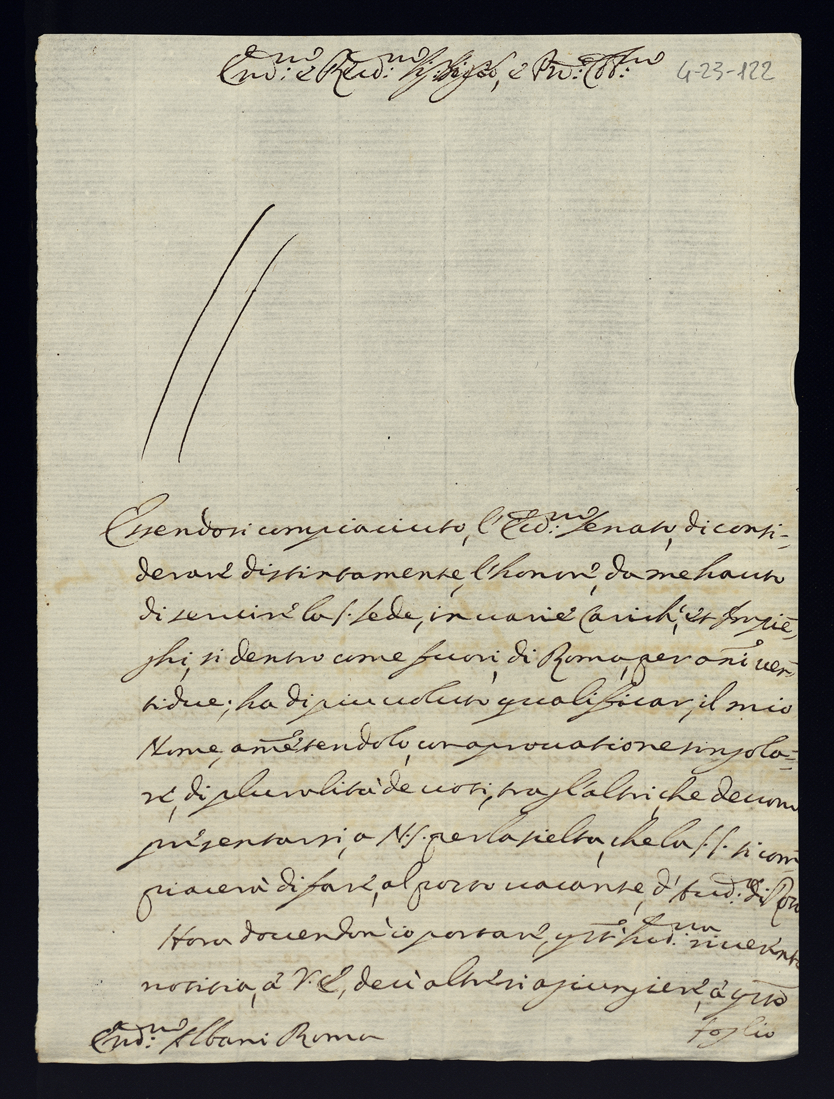 Em.mo e Rev.mo Sig.re Sig.re, e P.ron Col.mo
4-23-122
Essendosi compiaciuto, l'Ecc.mo Senato, di consi-
derare distintamente, l'honore, da me hauto
di seruire la S. Sede, in uarie Carich', et Impie-
ghi, si dentro come fuori, di Roma, per anni uen-
tidue; ha di piu uoluto qualificar, il mio
Nome, ametendolo, con aprouatione singola-
re, di pluralità de uoti, tra gl'altri, che deuon
presentarsi, a N.S. per la scelta, che la S.S. si com-
piacerà di fare, al posto uacante, d'Aud.re di Rota
Hora douendone io portare, questa riuerente
notitia, à V.E., deuo altresi agiungiere, à questo
foglio
Em.mo Albani Roma